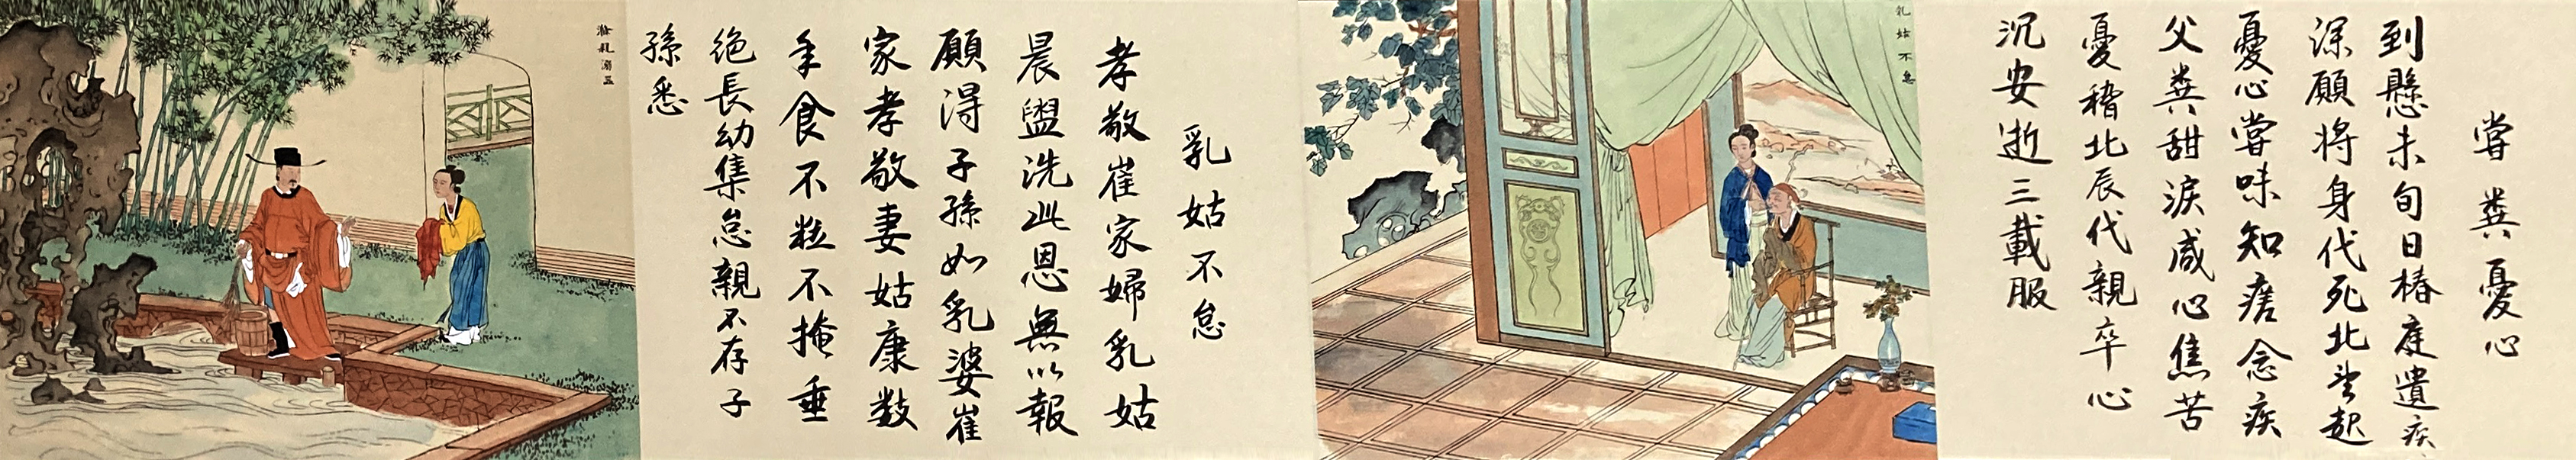 嘗糞憂心
到懸未旬日椿庭遺疾
深願將身代死北望起
憂心嘗味知瘥念疾
父糞甜淚咸心焦苦
憂稽北辰代親卒心
沉安逝三載服
乳姑不怠
乳姑不怠
孝敬崔家婦乳姑
晨盥洗此恩無以報
願得子孫如乳婆崔
家孝敬妻姑康数
年食不粒不掩垂
絶長幼集怠親不存子
孫悉
滌親溺器